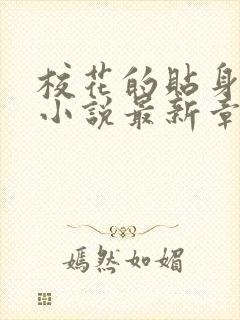 校花的貼身
小說最新章
嫣然如媚